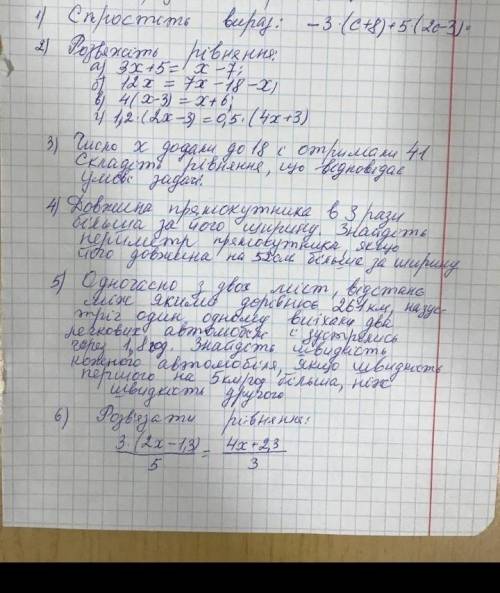 1) Спростіть вираз: -3·(c+8)+5(2c-3)·
2) Розв'яжіть рівняння:
а) 3x+5=x-7;
б) 12x=7x-18-x;
в) 4(x-3)=x+6;
г) 1,2·(2x-3)=0,5·(4x+3)
3) Число x додали до 18 і отримали 41
Складіть рівняння, що відповідає
умові задачі.
4) Довжина прямокутника в 3 рази
більша за його ширину. Знайдіть
периметр прямокутника якщо
його довжина на більша за ширину
5) Одночасно з двох міст, відстань
між якими дорівнює 261 км, назус-
тріч один одному виїхали два
легкових автомобілі і зустрілись
через 1,8 год. Знайдіть швидкість
кожного автомобіля, якщо швидкість
першого на 5 км/год більша, ніж
швидкість другого
6) Розв'язати рівняння:
3·(2x-1,3) = 4x+2,3
5 3